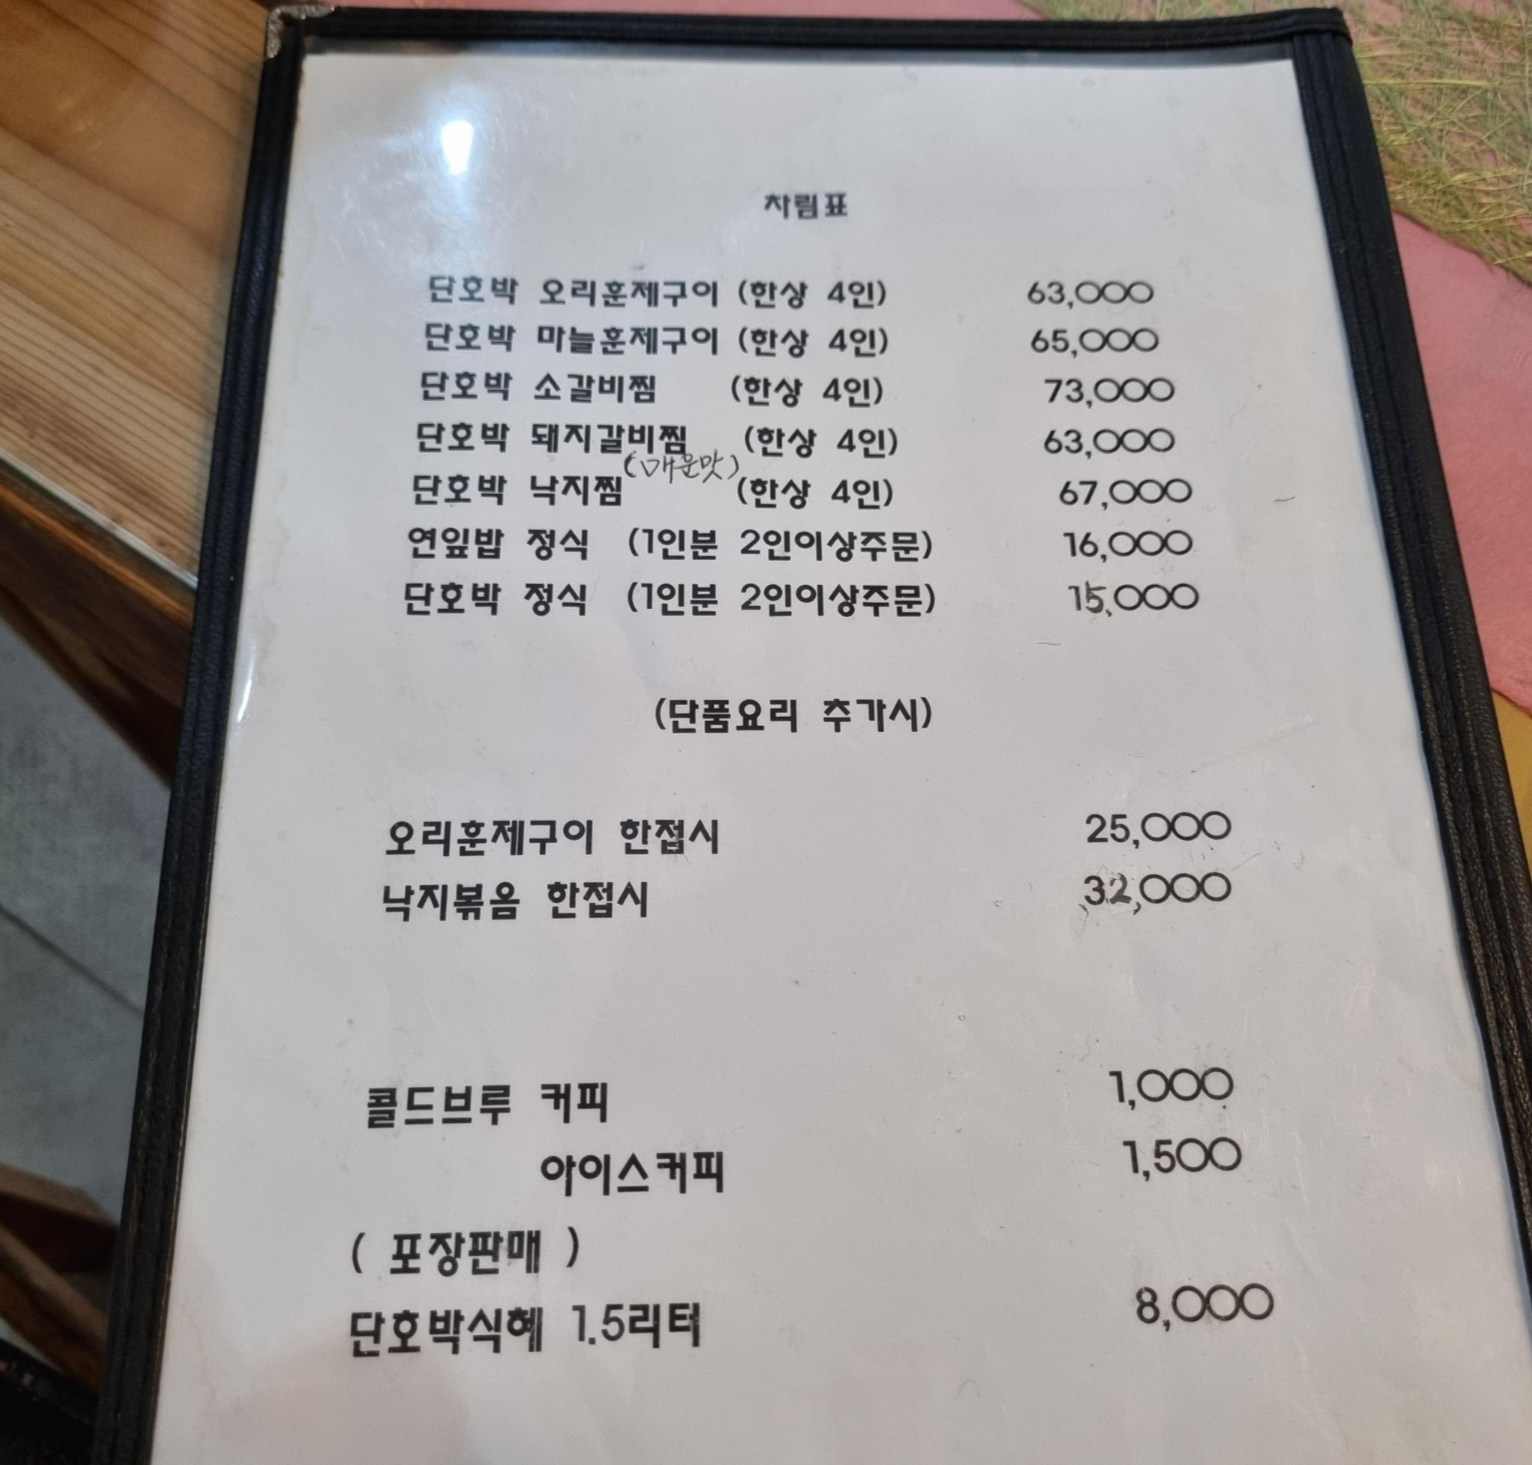 차림표
단호박 오리훈제구이 (한상 4인) 63,000
단호박 마늘훈제구이 (한상 4인) 65,000
단호박 소갈비찜 (한상 4인) 73,000
단호박 돼지갈비찜 (한상 4인) 63,000
(매운맛)
단호박 낙지찜 (한상 4인) 67,000
연잎밥 정식 (1인분 2인이상주문) 16,000
단호박 정식 (1인분 2인이상주문) 15,000
(단품요리 추가시)
오리훈제구이 한접시 25,000
낙지볶음 한접시 32,000
콜드브루 커피 1,000
아이스커피 1,500
( 포장판매 )
단호박식혜 1.5리터 8,000